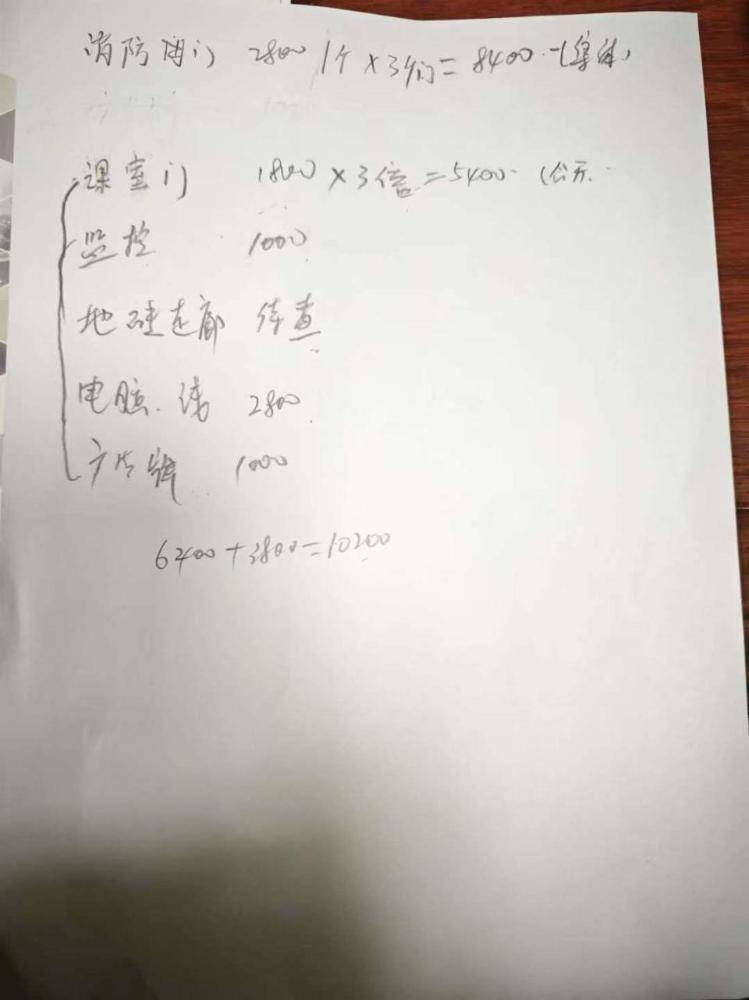 消防门 2800 1个×3个=8400 (集体)
课室门 1800×3倍=5400 (公开
监控 1000
地 走廊 待查
电脑、线 2800
广告牌 1000
6400+3800=10200